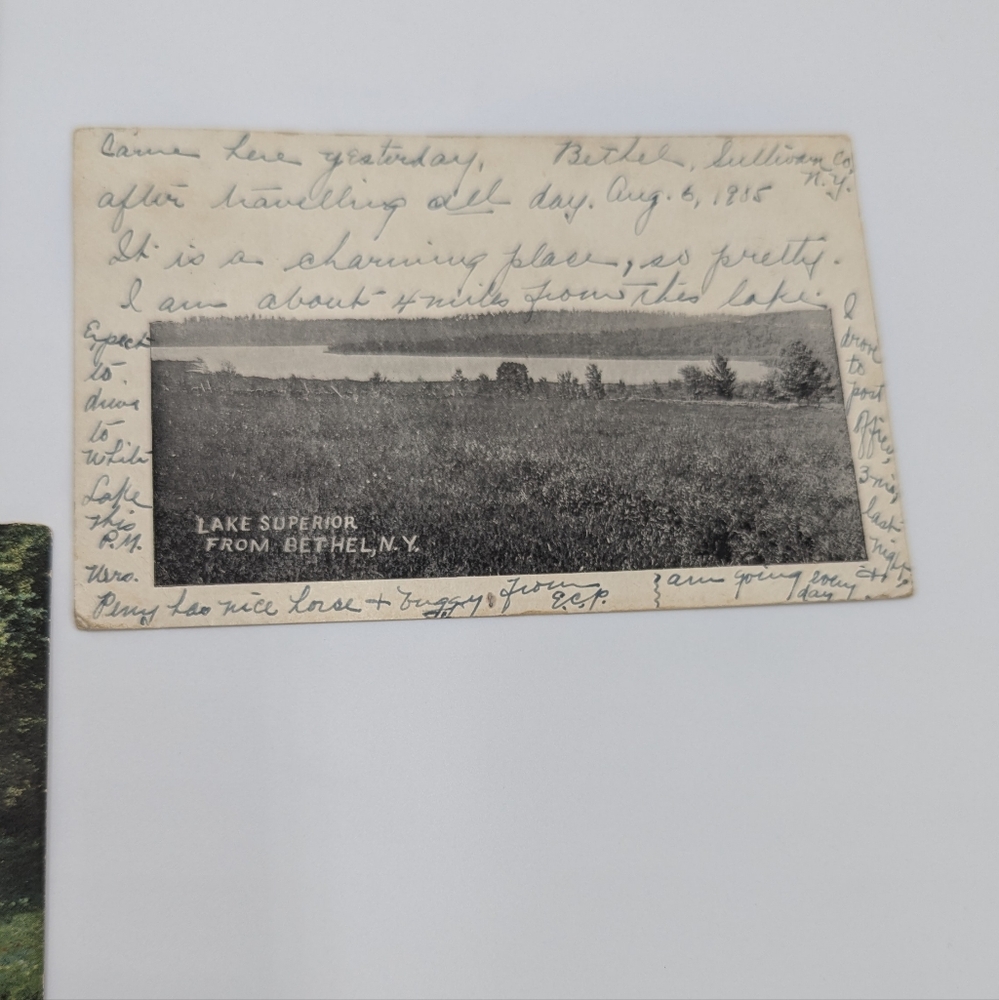 Bethel, Sullivan Co
N.Y.
Aug. 6, 1985
Came here yesterday,
after travelling all day.
It is a charming place, so pretty.
I am about 4 miles from this lake.
I
drove
to
post
office,
3 mis,
last
night,
+
am going every
day.
Expect
to
drive
to
White
Lake
this
P.M.
Mrs.
Perry has nice horse + buggy. from
E.C.P.
LAKE SUPERIOR
FROM BETHEL, N.Y.